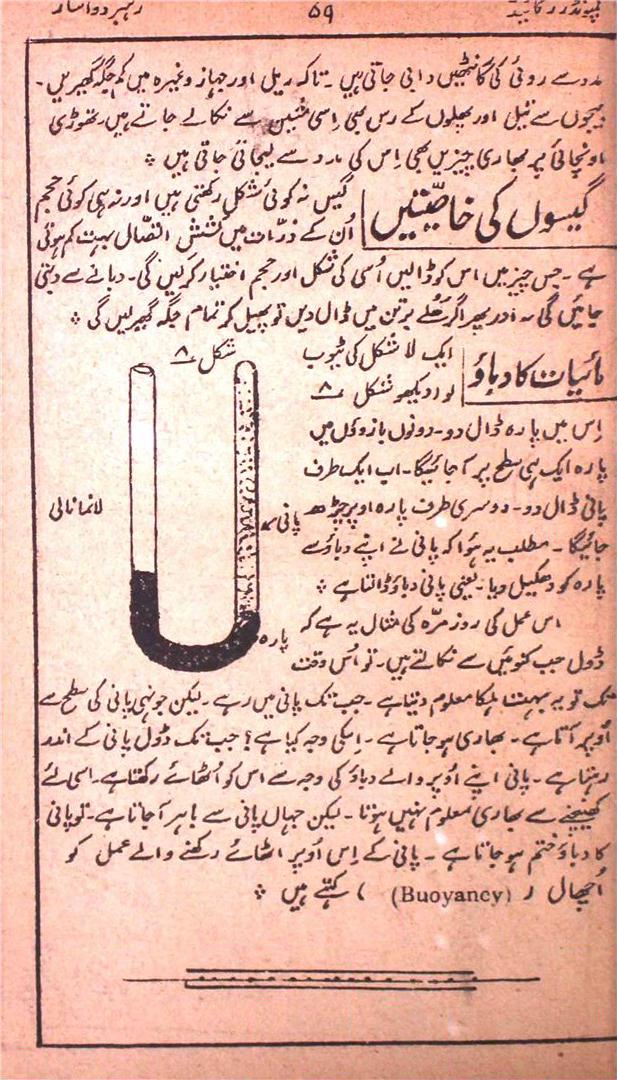 کمپونڈرز گائیڈ ۵۹ رہبر دواساز
مدد سے روئی کی گانٹھیں دابی جاتی ہیں ۔ تاکہ ریل اور جہاز وغیرہ میں کم جگہ گھیریں ۔
بیجوں سے تیل اور پھلوں کے رس بھی اِسی مشین سے نکالے جاتے ہیں ۔ تھوڑی
اونچائی پر بھاری چیزیں بھی اِس کی مدد سے لیجائی جاتی ہیں ۔
گیسوں کی خاصیّتیں
گیس نہ کوئی شکل رکھتی ہیں اور نہ ہی کوئی حجم
اُن کے ذرّات میں کشش اتّصال بہت کم ہوتی
ہے ۔ جس چیز میں اس کو ڈالیں اُسی کی شکل اور حجم اختیار کرلیں گی ۔ دبانے سے دبتی
جائیں گی ۔ اور پھر اگر کھلے برتن میں ڈال دیں تو پھیل کر تمام جگہ گھیر لیں گی ۔
مائیات کا دباؤ
ایک لا شکل کی ٹیوب
لو (دیکھو شکل ۸
اِس میں پارہ ڈال دو ۔ دونوں بازوؤں میں
پارہ ایک ہی سطح پر آجائیگا ۔ اب ایک طرف
پانی ڈال دو ۔ دوسری طرف پارہ اوپر چڑھ
جائیگا ۔ مطلب یہ ہوا کہ پانی نے اپنے دباؤ سے
پارہ کو دھکیل دیا ۔ یعنی پانی دباؤ ڈالتا ہے ۔
شکل ۸
لا نما نالی
پانی
پارہ
اس عمل کی روز مرّہ کی مثال یہ ہے کہ
ڈول جب کنوئیں سے نکالتے ہیں ۔ تو اُس وقت
تک تو یہ بہت ہلکا معلوم دیتا ہے ۔ جب تک پانی میں رہے ۔ لیکن جونہی پانی کی سطح سے
اُوپر آتا ہے ۔ بھاری ہو جاتا ہے ۔ اِسکی وجہ کیا ہے؟ جب تک ڈول پانی کے اندر
رہتا ہے ۔ پانی اپنے اُوپر والے دباؤ کی وجہ سے اس کو اُٹھائے رکھتا ہے ۔ اسی لئے
کھینچنے سے بھاری معلوم نہیں ہوتا ۔ لیکن جہاں پانی سے باہر آجاتا ہے ۔ تو پانی
کا دباؤ ختم ہو جاتا ہے ۔ پانی کے اِس اُوپر اٹھائے رکھنے والے عمل کو
اُچھال ر (Buoyancy) ) کہتے ہیں ۔